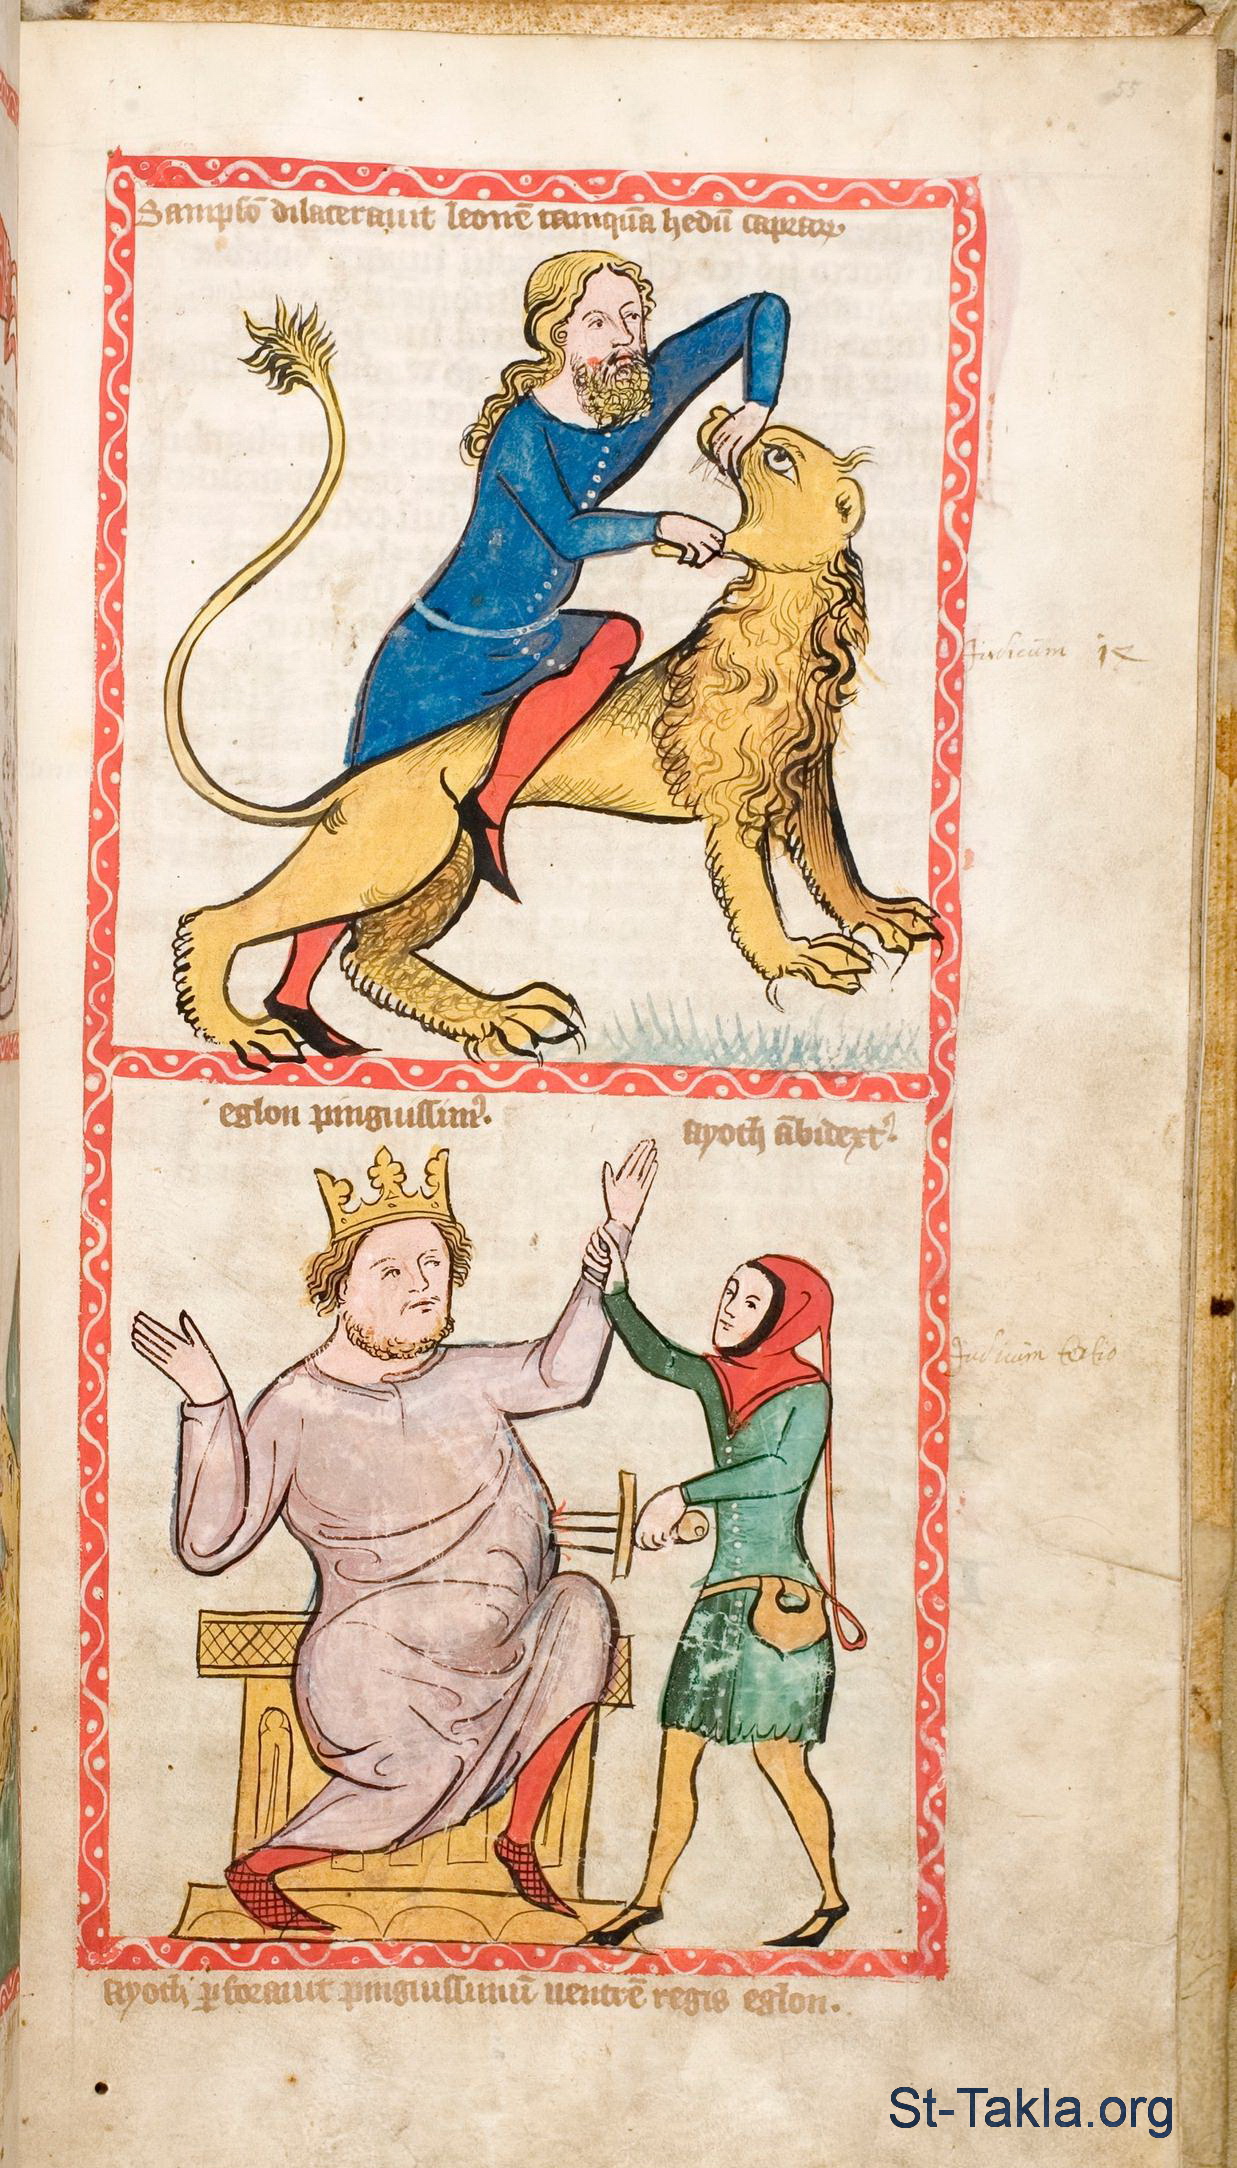 55
Sampsō dilaceravit leonē tamquā hedū caprarꝝ
Judicum 1<
eglon pinguissimꝰ.
ayoth ābidextꝰ.
Judicūm tertio
ayoth ꝑforauit pinguissimū uentrē regis eglon.
St-Takla.org